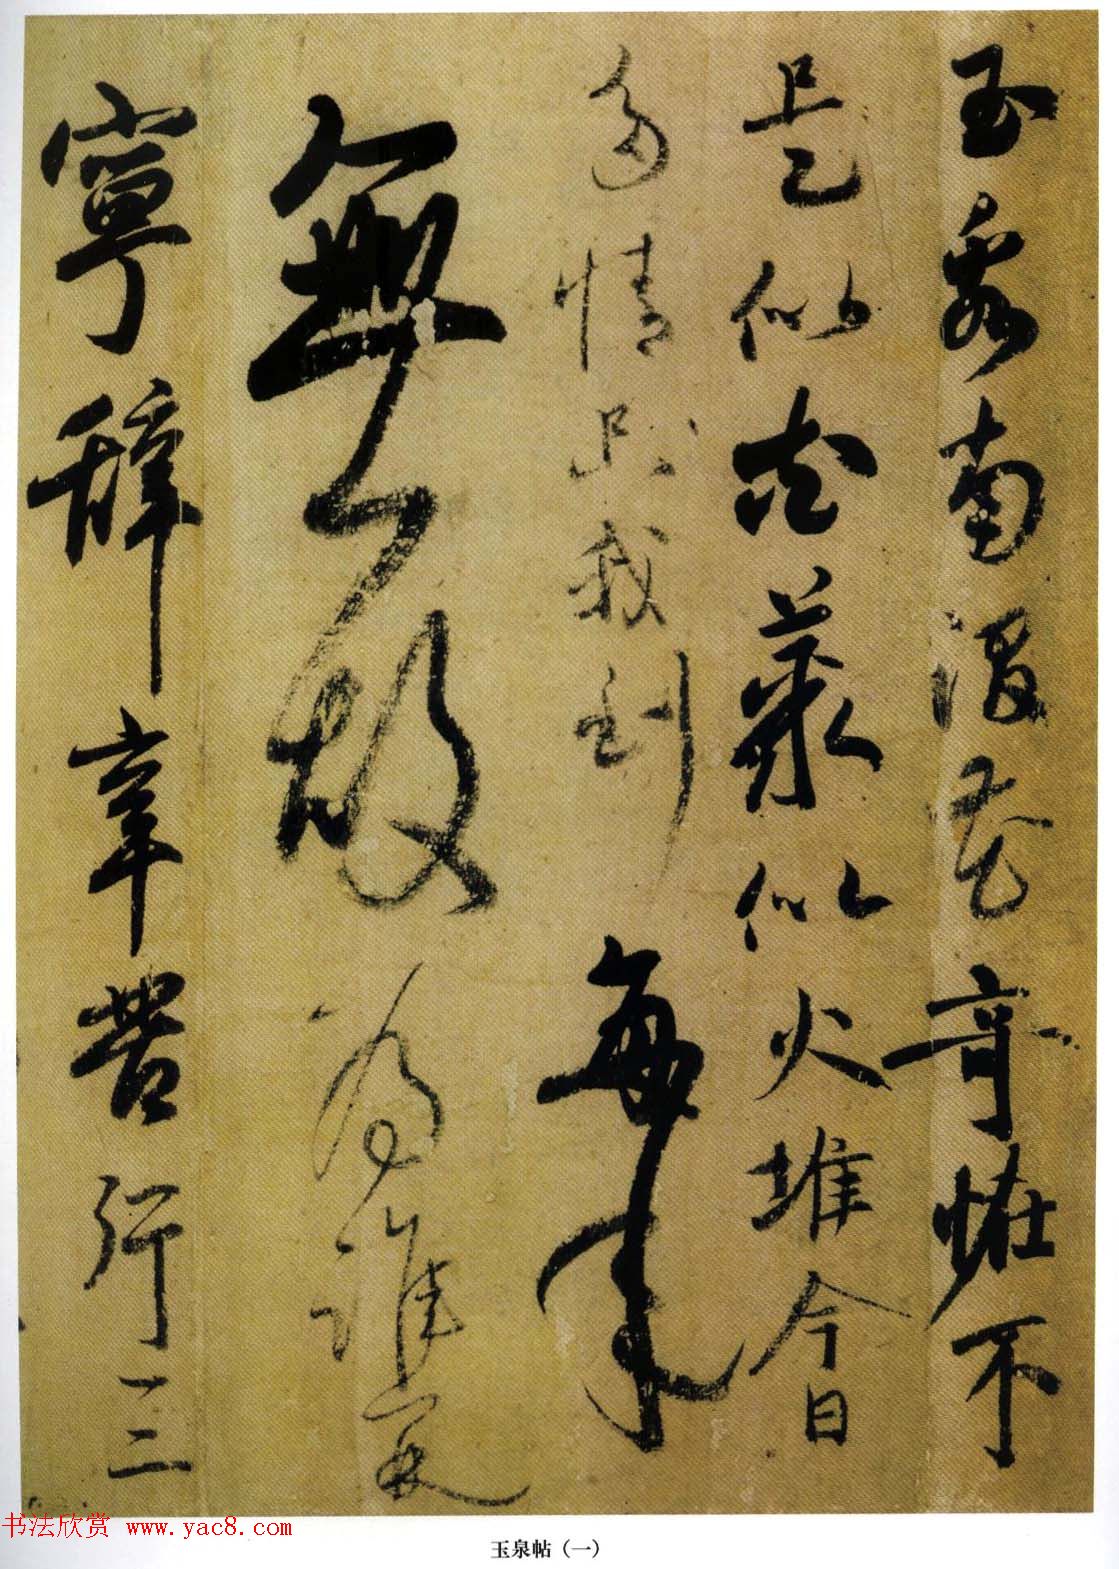 玉泉南澗花奇恠不
是似花叢似火堆今日
多情唯我到每年
無故為誰開
寧辭辛苦行三
书法欣赏 www.yac8.com
玉泉帖（一）